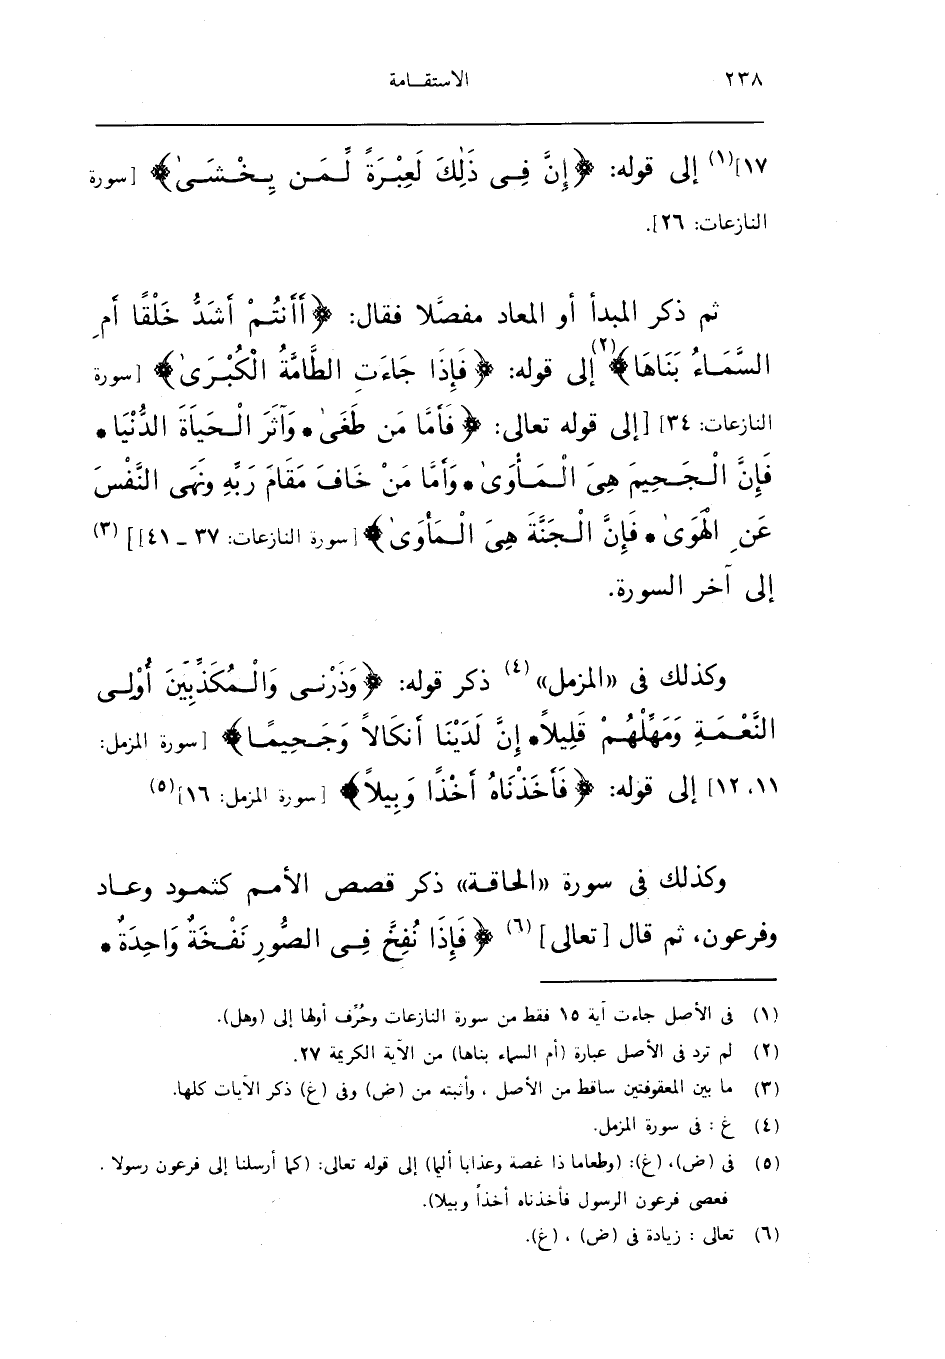 ٢٣٨ الاستقـامة
١٧]⁽¹⁾ إلى قوله: ﴿إِنَّ فِـى ذَٰلِكَ لَعِبْرَةً لِّـمَـن يـخْـشَـىٰ﴾ [سورة
النازعات: ٢٦].
ثم ذكر المبدأ أو المعاد مفصَّلا فقال: ﴿أَأَنتُـمْ أَشَدُّ خَلْقًا أَمِ
السَّمَـاءُ بَنَاهَا﴾⁽٢⁾إلى قوله: ﴿فَإِذَا جَاءَتِ الطَّامَّةُ الْكُبْـرَىٰ﴾ [سورة
النازعات: ٣٤] [إلى قوله تعالى: ﴿فَأَمَّا مَن طَغَىٰ • وَآثَرَ الْـحَيَاةَ الدُّنْيَا •
فَإِنَّ الْـجَـحِيمَ هِىَ الْـمَـأْوَىٰ • وَأَمَّا مَنْ خَافَ مَقَامَ رَبِّهِ ونَهَى النَّفْسَ
عَنِ الْهَوَىٰ • فَإِنَّ الْـجَنَّةَ هِىَ الْـمَأْوَىٰ﴾ [سورة النازعات: ٣٧ ـ ٤١]] ⁽٣⁾
إلى آخر السورة.
وكذلك فى «المزمل» ⁽٤⁾ ذكر قوله: ﴿وَذَرْنـى وَالْـمُكَذِّبِينَ أُوْلِـى
النَّعْـمَـةِ وَمَهِّلْهُـمْ قَلِيلاً • إِنَّ لَدَيْنَا أَنكَالاً وَجَـحِيمًـا﴾ [سورة المزمل:
١١، ١٢] إلى قوله: ﴿فَأَخَذْنَاهُ أَخْذًا وَبِيلاً﴾ [سورة المزمل: ١٦]⁽٥⁾
وكذلك فى سورة «الحاقـة» ذكر قصص الأمـم كثمـود وعـاد
وفرعون، ثم قال [تعالى] ⁽٦⁾ ﴿فَإِذَا نُفِخَ فِـى الصُّورِ نَفْـخَةٌ وَاحِدَةٌ •
(١) فى الأصل جاءت آية ١٥ فقط من سورة النازعات وحُرِّف أولها إلى (وهل).
(٢) لم ترد فى الأصل عبارة (أم السماء بناها) من الآية الكريمة ٢٧.
(٣) ما بين المعقوفتين ساقط من الأصل ، وأثبته من (ض) وفى (غ) ذكر الآيات كلها.
(٤) غ : فى سورة المزمل.
(٥) فى (ض)، (غ): (وطعاما ذا غصة وعذابا أليما) إلى قوله تعالى: (كما أرسلنا إلى فرعون رسولا .
فعصى فرعون الرسول فأخذناه أخذاً وبيلا).
(٦) تعالى : زيادة فى (ض) ، (غ).